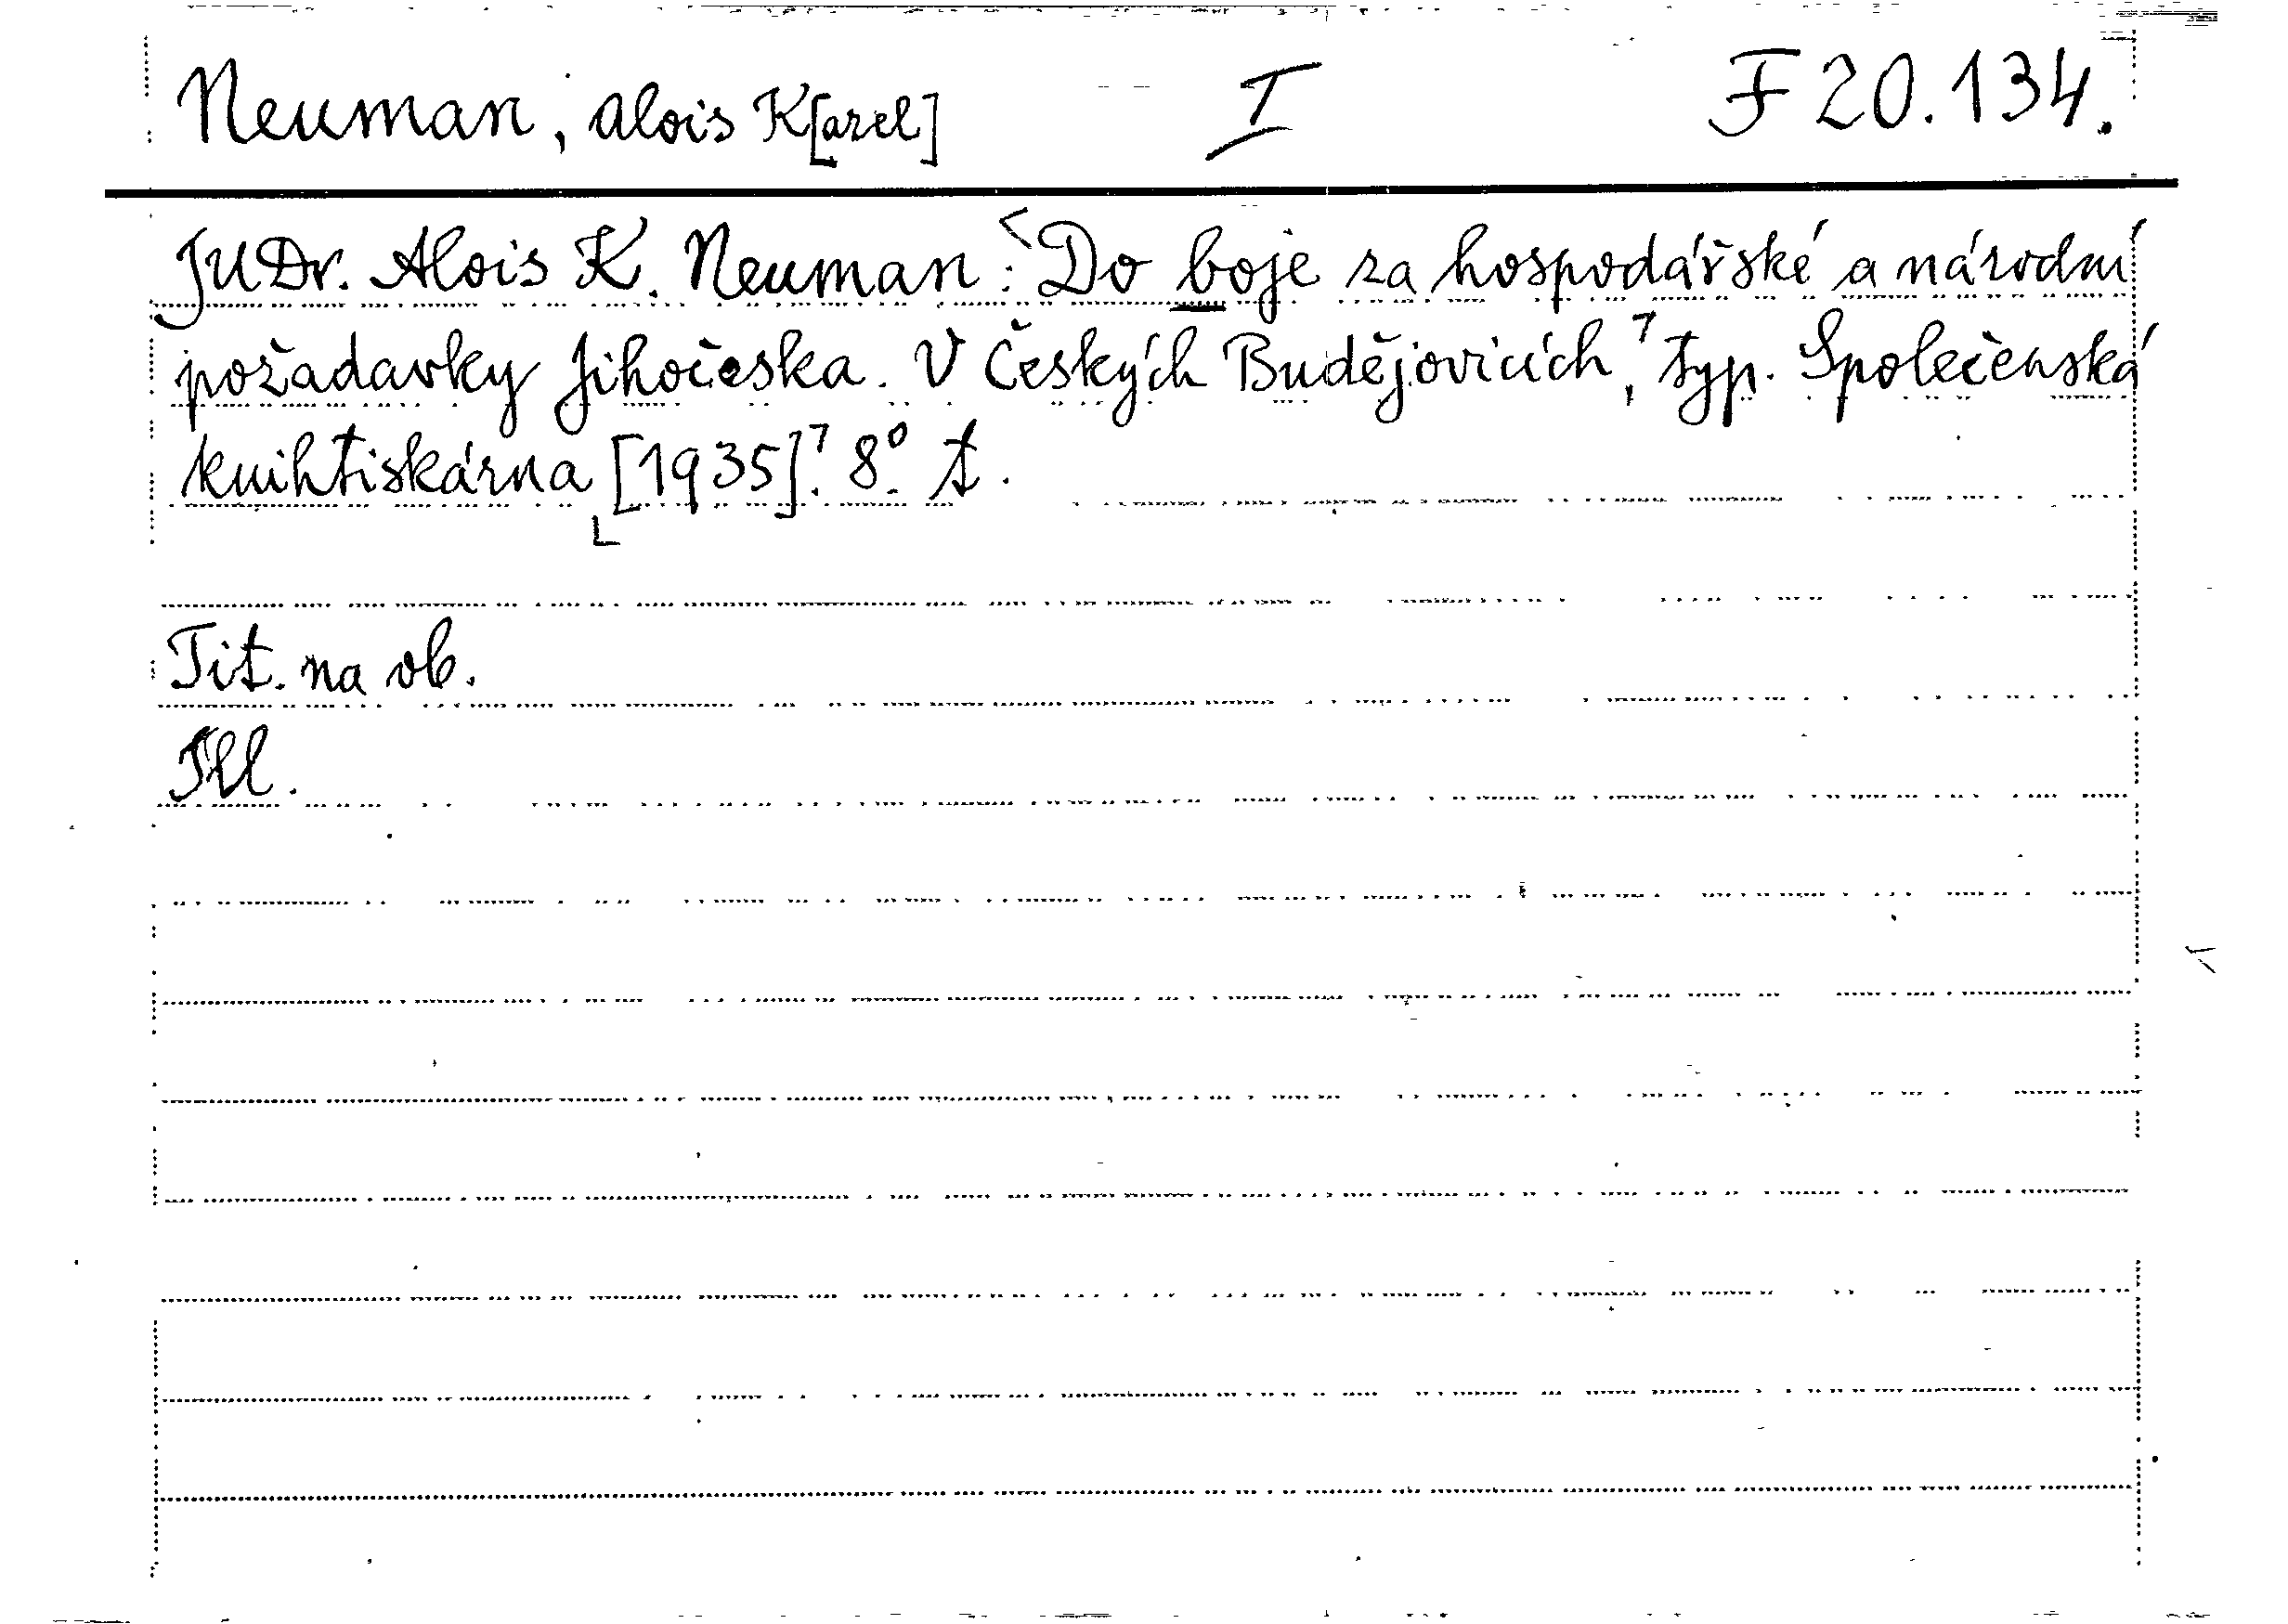 Neuman, Alois K[arel] I F 20.134.
JUDr. Alois K. Neuman: Do boje za hospodářské a národní
požadavky Jihočeska. V Českých Budějovicích, typ. Společenská
knihtiskárna [1935]. 8° t.
Tit. na ob.
Ill.